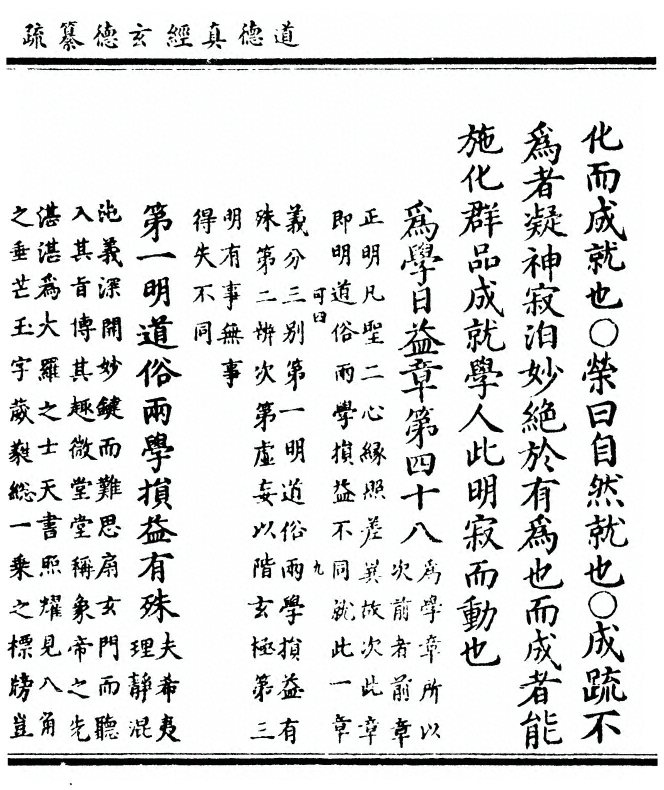 道德真經玄德纂疏
化而成就也〇榮曰自然就也〇成疏不
爲者凝神寂泊妙絶於有爲也而成者能
施化群品成就學人此明寂而動也
爲學日益章第四十八
爲學章所以
次前者前章
正明凡聖二心緣照差異故次此章
即明道俗兩學損益不同就此一章
可曰
九
義分三別第一明道俗兩學損益有
殊第二辨次第虛妄以階玄極第三
明有事無事
得失不同
第一明道俗兩學損益有殊
夫希夷
理靜混
沌義深開妙鍵而難思扃玄門而聽
入其旨傳其趣微堂堂稱象帝之先
湛湛爲大羅之士天書照耀見八角
之垂芒玉字葳蕤總一乘之標牓豈